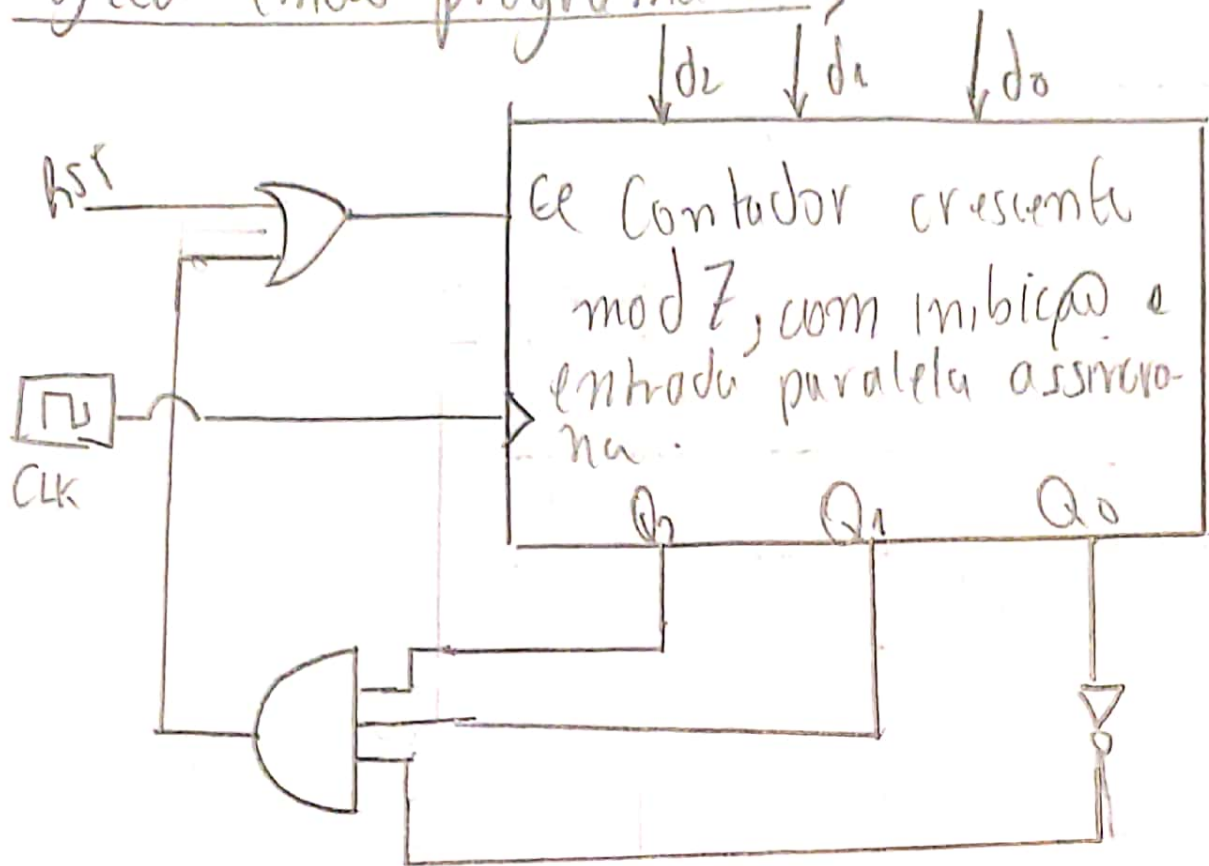 d2 d1 d0
RST
Contador crescente
mod 7, com inibição e
entrada paralela assincro-
na.
CLK
Q2 Q1 Q0